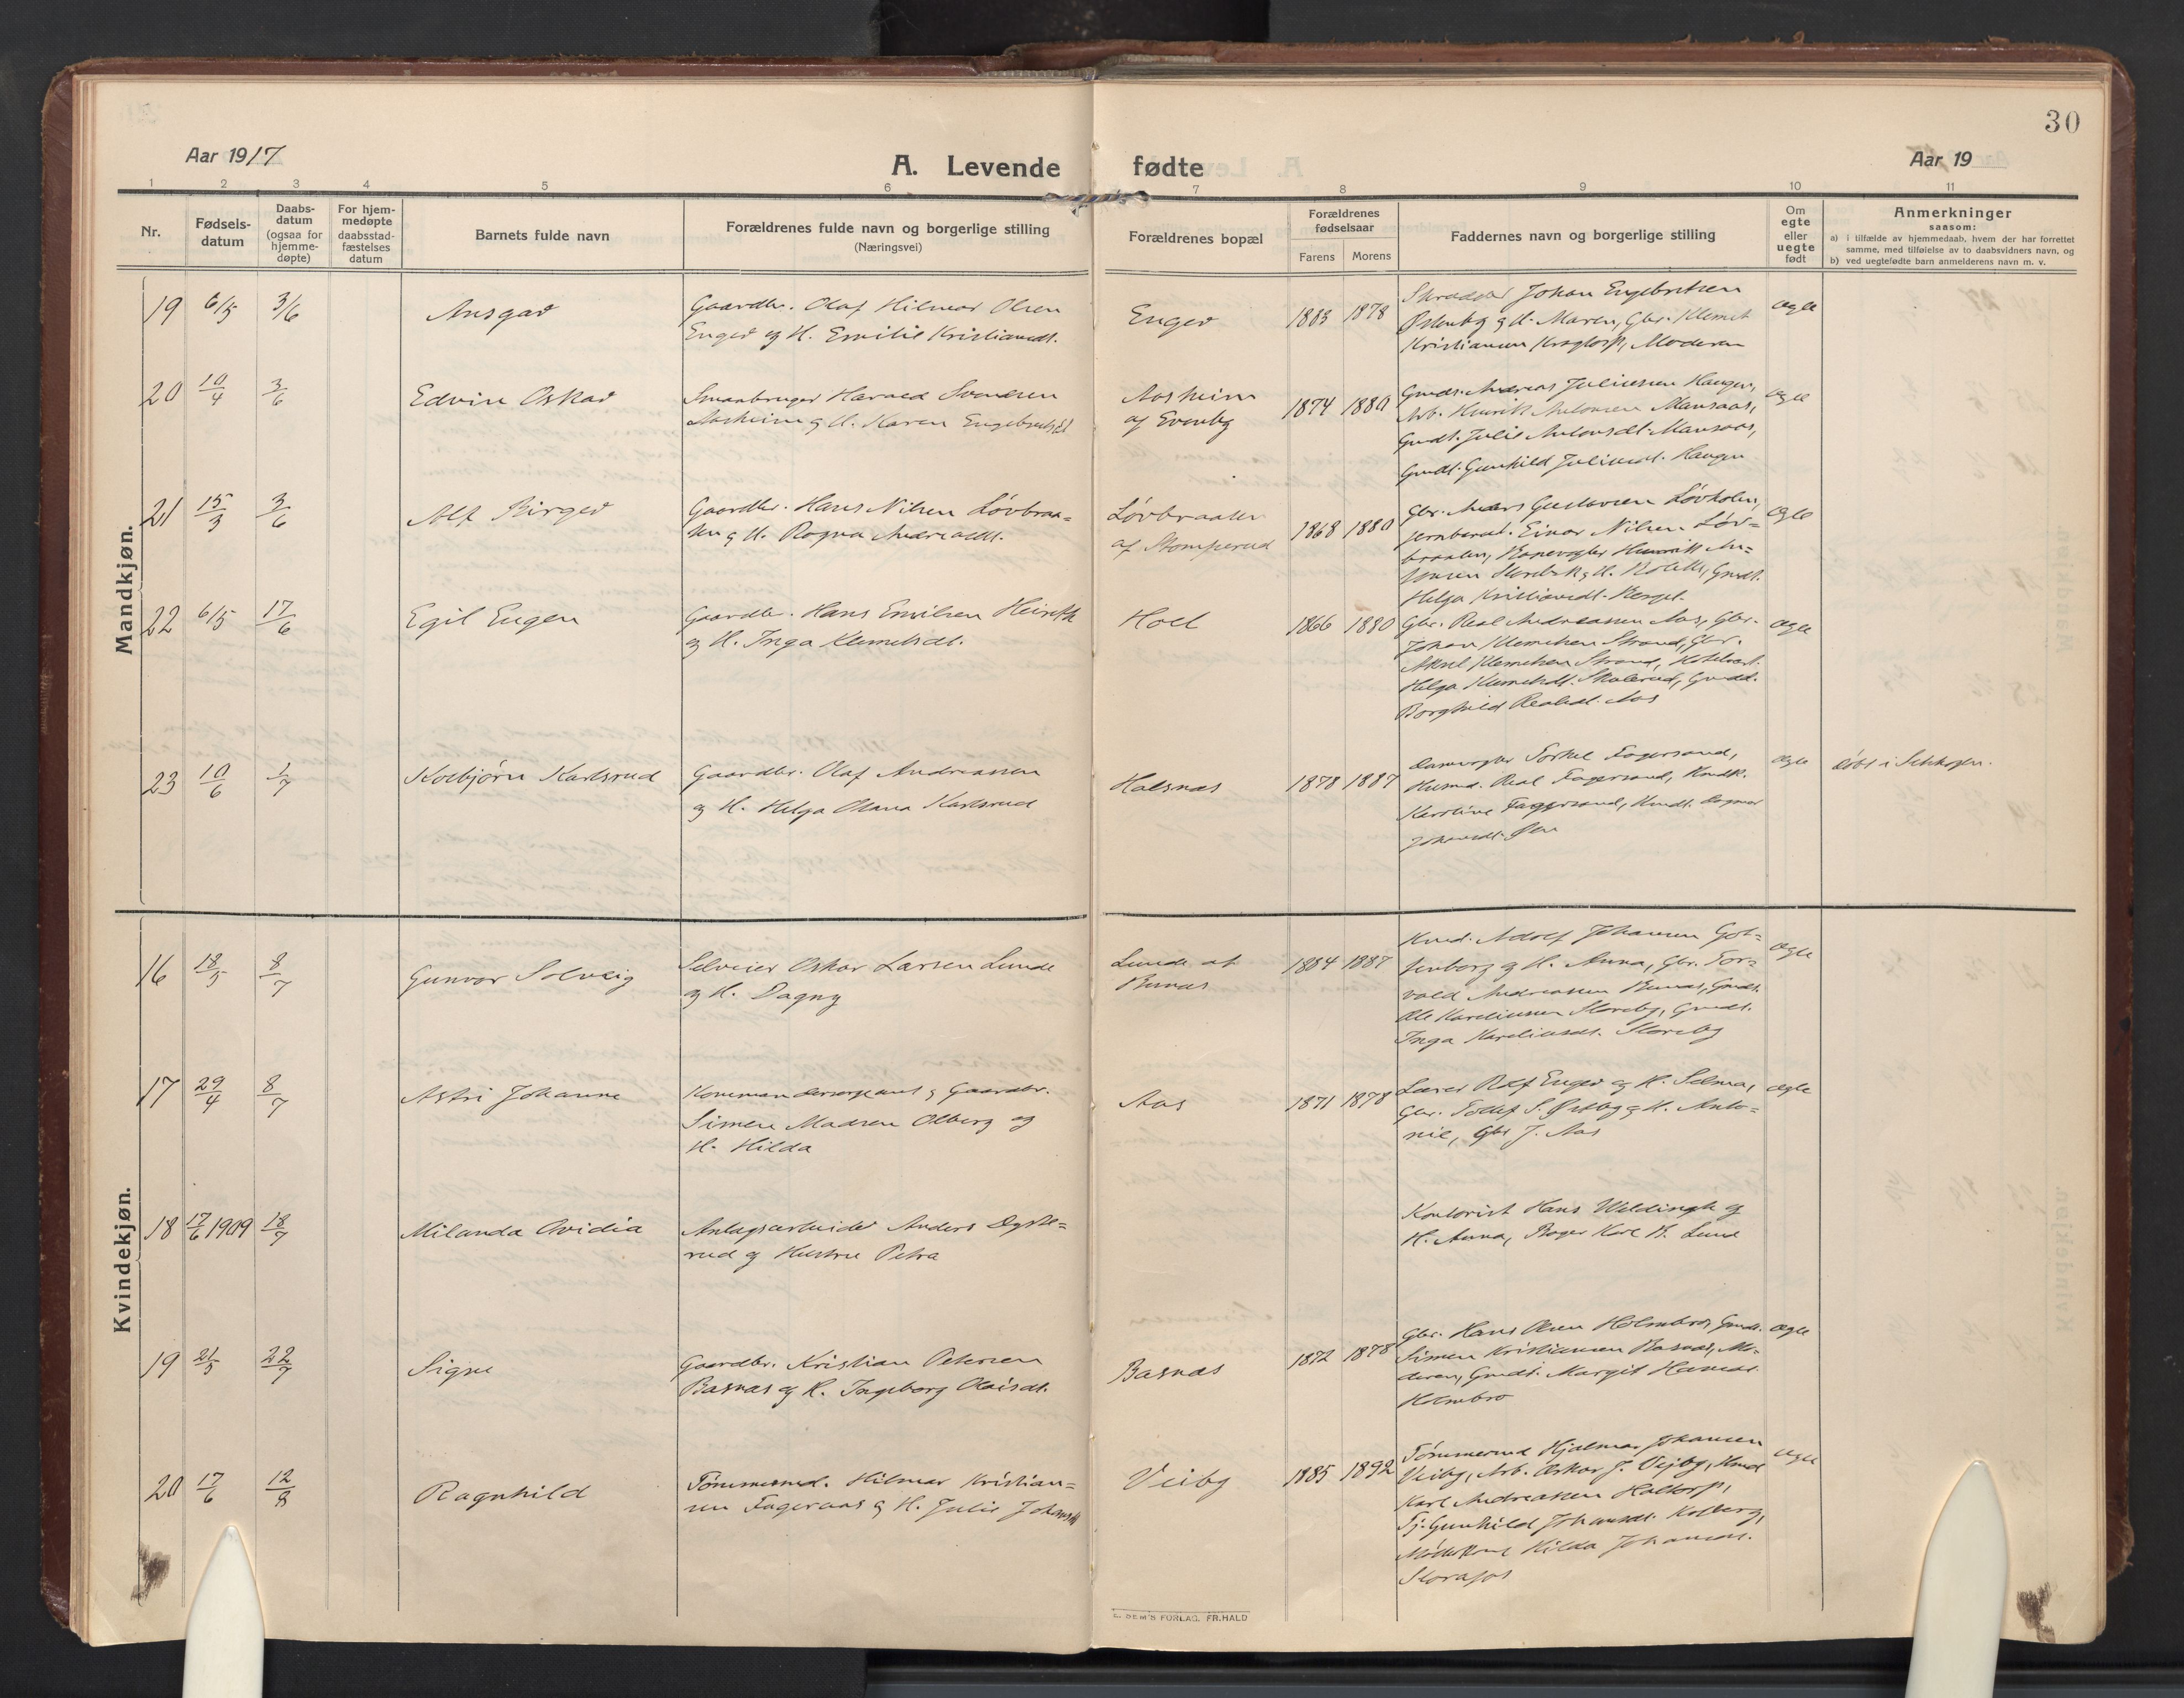 30
Aar 1917
A. Levende fødte
Aar 19
1 2 3 4 5 6 7 8 9 10 11
Nr.
Fødsels-
datum
Daabs-
datum
(ogsaa for
hjemme-
døpte)
For hjem-
medøpte
daabsstad-
fæstelses
datum
Barnets fulde navn
Forældrenes fulde navn og borgerlige stilling
(Næringsvei)
Forældrenes bopæl
Forældrenes
fødselsaar
Farens Morens
Faddernes navn og borgerlige stilling
Om
egte
eller
uegte
født
Anmerkninger
saasom:
a) i tilfælde av hjemmedaab, hvem der har forrettet
samme, med tilføielse av to daabsvidners navn, og
b) ved uegtefødte barn anmelderens navn m. v.
Mandkjøn.
19 6/5 3/6 Ansgar
Gaardbr. Olaf Hilmar Olsen
Enger og H. Emilie Kristiansdt.
Enger
1883 1878
Skrædder Johan Engebretsen
Østenby og H. Maren, Gbr. Klemet
Kristiansen Krogtorp, Moderen
egte
20 10/4 3/6 Edvin Oskar
Smaabruger Harald Svendsen
Aasheim og H. Karen Engebretsdt
Aasheim
af Evenby
1874 1880
Gmds. Andreas Juliussen Haugen,
Arb. Henrik Antonsen Mansaas,
Gmdt. Julie Antonsdt. Mansaas,
Gmdt. Gunhild Juliusdt. Haugen
egte
21 15/3 3/6 Alf Birger
Gaardbr. Hans Nilsen Løvbraa=
ten og H. Ragna Andreasdt.
Løvbraaten
af Stomperud
1868 1880
Gbr. Anders Gustavsen Løvholen,
Jernbanat. Einar Nilsen Løv=
braaten, Banevogter Henrik
Helga Kristiansdt. Berget.
egte
22 6/5 17/6 Egil Eugen
Gaardbr. Hans Emilsen
og H. Inga Klemetsdt.
Hoel
1866 1880
Gbr. Real Andreassen Aas, Gbr.
Johan Klemetsen Strand, Gbr.
Aksel Klemetsen Strand,
Helga Klemetsdt. Skolerud, Gmdt.
Borghild Realsdt. Aas
egte
23 10/6 1/7 Kolbjørn Karlsrud
Gaardbr. Olaf Andreassen
og H. Helga Olava Karlsrud
Halsnæs
1878 1887
Damvogter Torkel Fagersand,
Husmd. Real Fagersand,
Karoline Fagersand, Dagmar
Johansdt. Øen
egte
døbt i
Kvindekjøn.
16 18/5 8/7 Gunvor Solveig
Selveier Oskar Larsen Lunde
og H. Dagny
Lunde af
Bunæs
1884 1887
Adolf Johansen Got=
tenborg og H. Anna, Gbr. Tor=
vald Andreassen Bunæs, Gmds.
Ole Kareliussen Storeby, Gmdt.
Inga Kareliusdt. Storeby
egte
17 29/4 8/7 Astri Johanne
Kommandersergeant og Gaardbr.
Simen Madsen Olberg og
H. Hilda
Aas
1871 1878
Lærer Rolf Enger og H. Selma,
Gbr. Tollef S. Østby og H. Anto=
nie, Gbr J. Aas
egte
18 17/6 1909 18/7 Milanda Ovidia
Anlægsarbeider Anders Dyste=
rud og Hustru Petra
Kontorist Hans Weldingh og
H. Anna, Bager Karl B. Lund
19 21/5 22/7 Signe
Gaardbr. Kristian Petersen
Basnæs og H. Ingeborg Olaisdt.
Basnæs
1872 1878
Gbr. Hans Olsen Holmbro, Gmds.
Simen Kristiansen Basnæs, Mo=
deren, Gmdt. Margit Hansdt.
Holmbro
egte
20 17/6 12/8 Ragnhild
Tømmermd. Hilmar Kristian=
sen Fageraas og H. Julie Johansdt
Veiby
1885 1892
Tømmermd Hjalmar Johansen
Veiby, Arb. Oskar J. Vejby,
Karl Andreassen Haltorp,
Tj. Gunhild Johansdt. Kolberg,
Hilda Johansdt.
egte
E. SEM'S FORLAG. FR. HALD